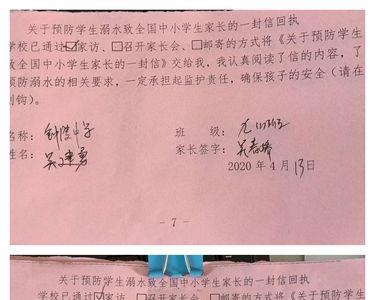 关于预防学生溺水致全国中小学生家长的一封信回执
学校已通过☑家访、☐召开家长会、☐邮寄的方式将《关于预防学生
致全国中小学生家长的一封信》交给我,我认真阅读了信的内容,了
预防溺水的相关要求,一定承担起监护责任,确保孩子的安全(请在
划钩)。
名称: 钟陵中学 班 级:
姓名: 吴建勇 家长签字: 吴春娇
2020年4月13日
- 7 -
关于预防学生溺水致全国中小学生家长的一封信回执
学校已通过☑家访、☐召开家长会、☐邮寄的方式将《关于预防学生